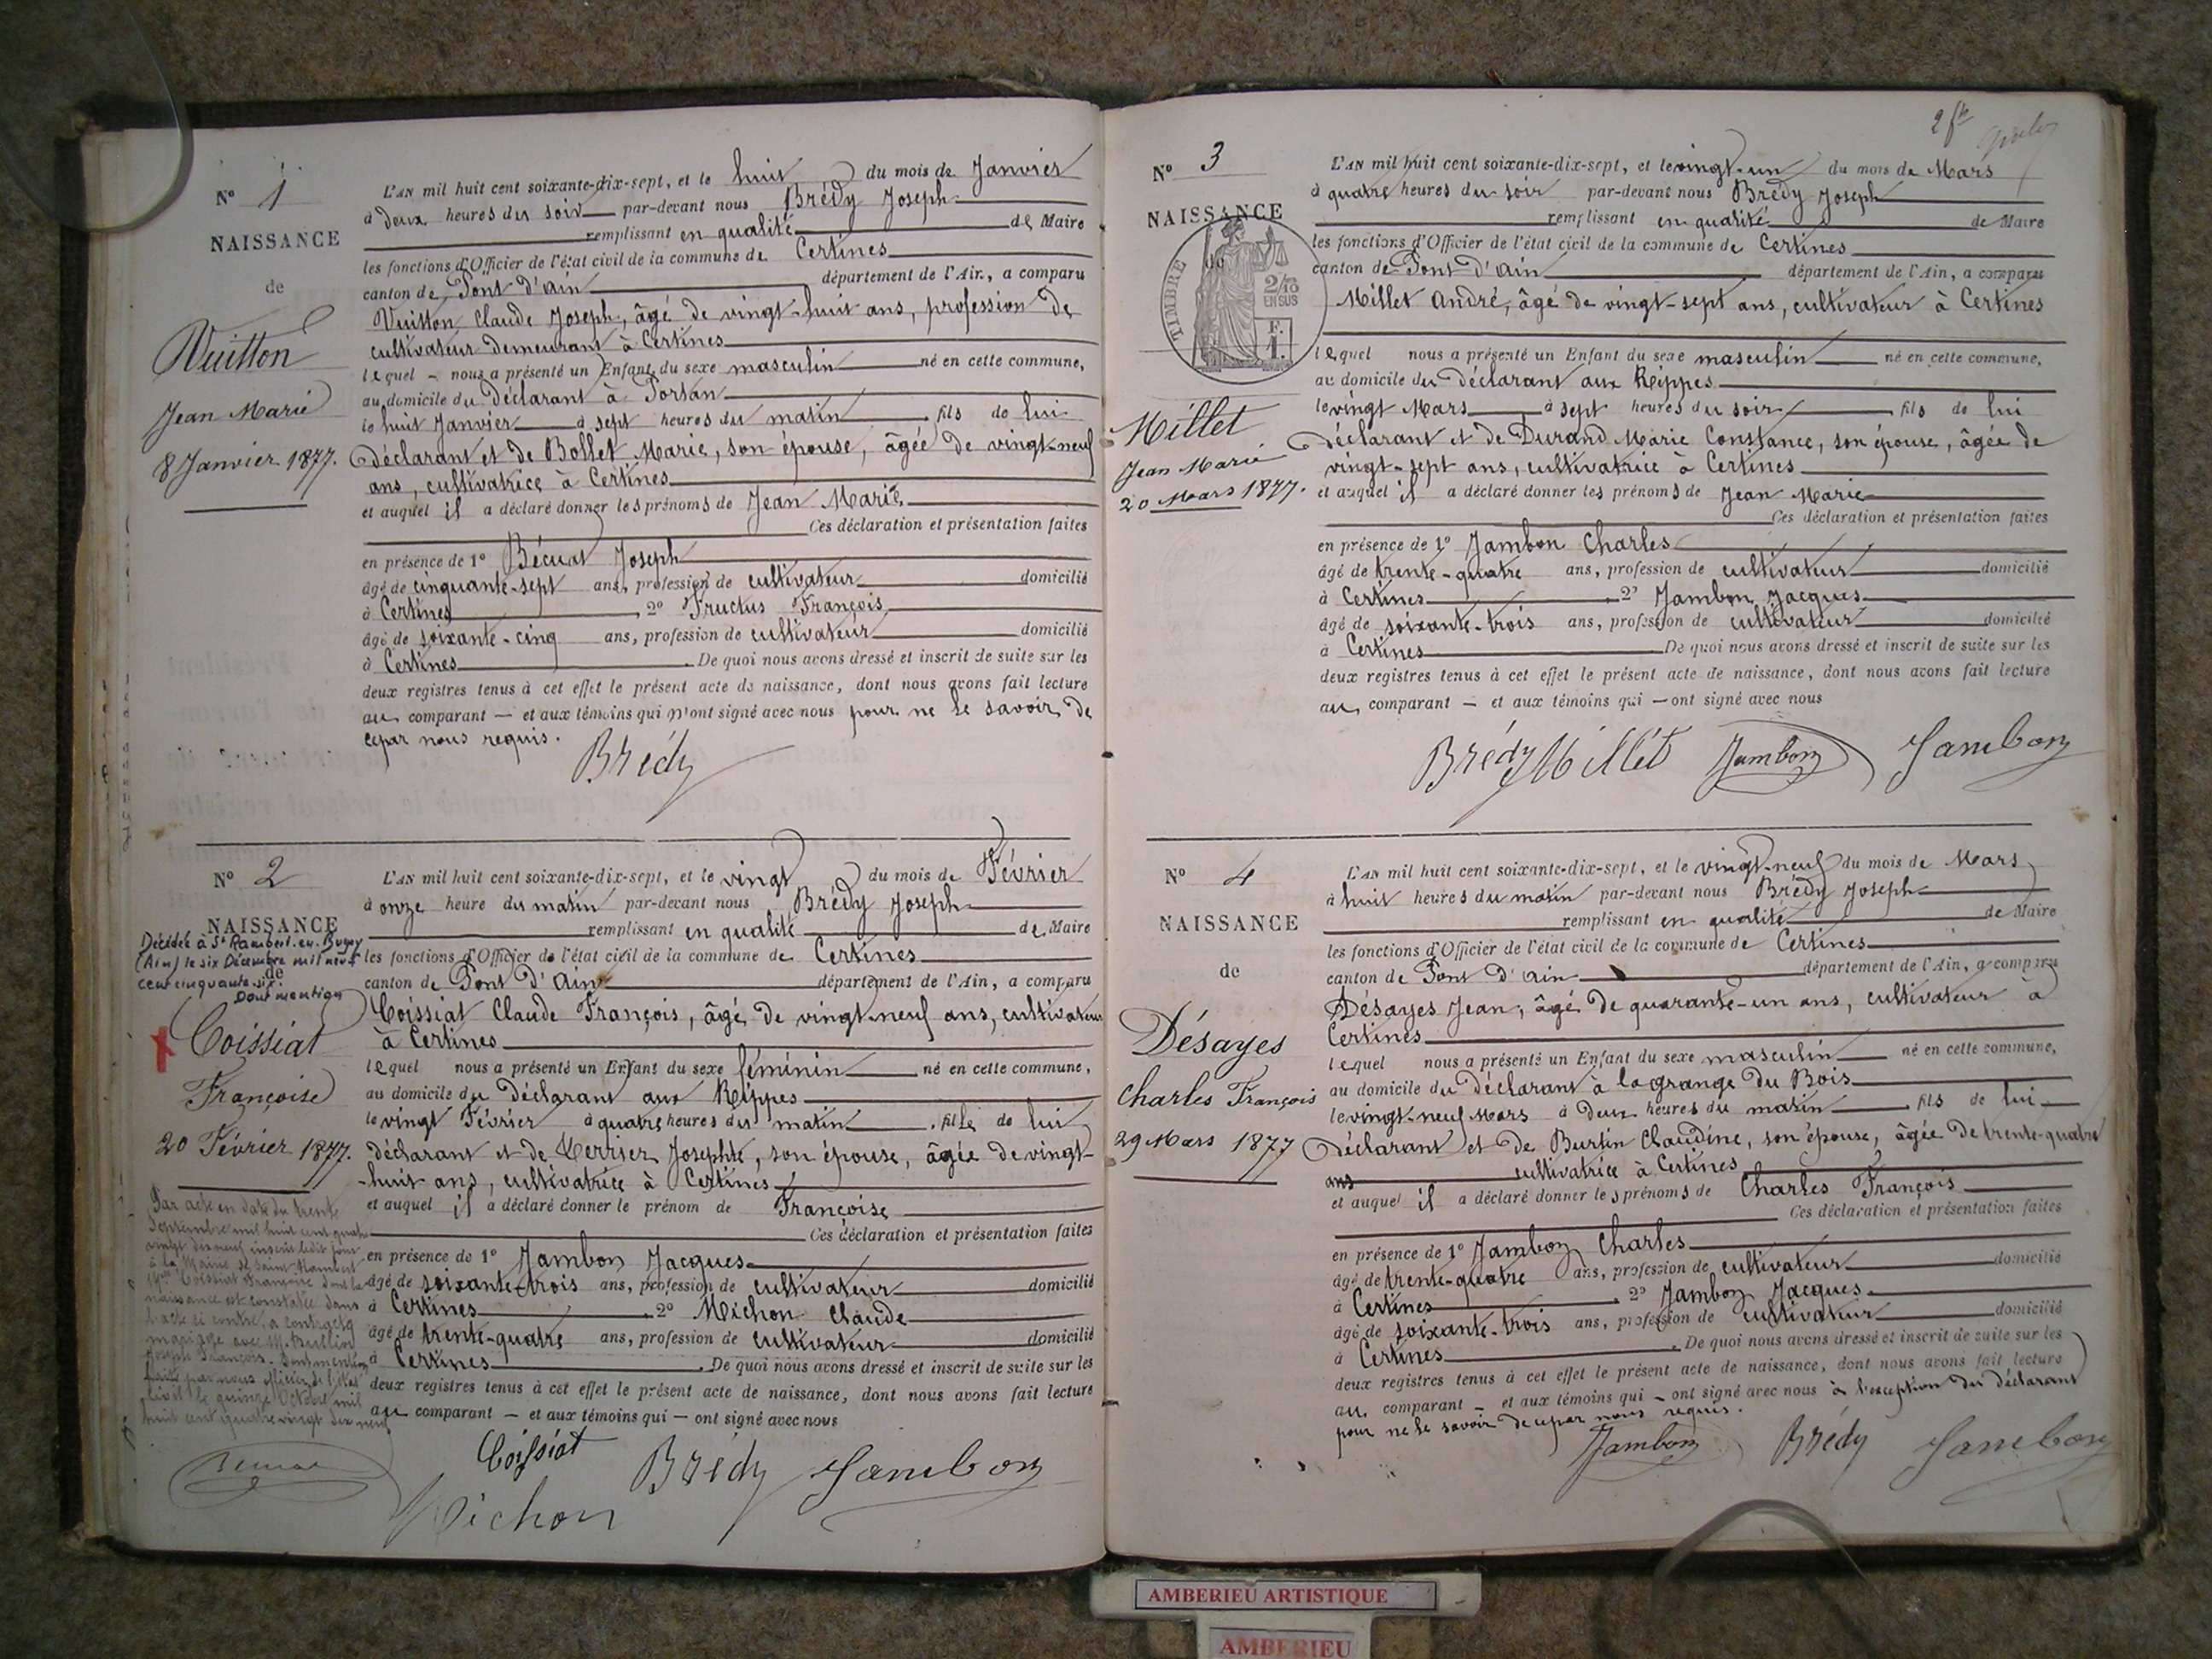 N° 1
NAISSANCE
de
Vuitton
Jean Marie
8 Janvier 1877.
L'AN mil huit cent soixante-dix-sept, et le huit du mois de Janvier
à deux heures du soir par-devant nous Brédy Joseph
remplissant en qualité de Maire
les fonctions d'Officier de l'état civil de la commune de Certines
canton de Pont d'ain département de l'Ain, a comparu
Vuitton Claude Joseph, âgé de vingt-huit ans, profession de
cultivateur demeurant à Certines
lequel - nous a présenté un Enfant du sexe masculin né en cette commune,
au domicile du déclarant à Porsan
le huit Janvier à sept heures du matin, fils de lui
déclarant et de Bollet Marie, son épouse, âgée de vingt-neuf
ans, cultivatrice à Certines
et auquel il a déclaré donner les prénoms de Jean Marie
Ces déclaration et présentation faites
en présence de 1° Bécuat Joseph
âgé de cinquante-sept ans, profession de cultivateur domicilié
à Certines, 2° Fructus François
âgé de soixante-cinq ans, profession de cultivateur domicilié
à Certines. De quoi nous avons dressé et inscrit de suite sur les
deux registres tenus à cet effet le présent acte de naissance, dont nous avons fait lecture
au comparant — et aux témoins qui n'ont signé avec nous pour ne le savoir de
ce par nous requis.
Brédy
N° 2
NAISSANCE
Décédée à St Rambert-en-Bugey
(Ain) le six Décembre mil neuf
de
cent cinquante six.
Dont mention
Coissiat
Françoise
20 Février 1877.
Par acte en date du trente
Septembre mil huit cent quatre
vingt dix neuf inscrit ledit jour
à la Mairie de Saint Rambert
Coissiat Françoise dont la
naissance est constatée dans
l'acte ci contre, a contracté
mariage avec M.
Joseph François. Dont mention
faite par nous officier de l'état
civil le quinze Octobre mil
huit cent quatre vingt dix neuf
L'AN mil huit cent soixante-dix-sept, et le vingt du mois de Février
à onze heure du matin par-devant nous Brédy Joseph
remplissant en qualité de Maire
les fonctions d'Officier de l'état civil de la commune de Certines
canton de Pont d'Ain département de l'Ain, a comparu
Coissiat Claude François, âgé de vingt-neuf ans, cultivateur
à Certines
lequel nous a présenté un Enfant du sexe féminin né en cette commune,
au domicile du déclarant aux Réippes
le vingt Février à quatre heures du matin, fille de lui
déclarant et de Perrier Josephte, son épouse, âgée de vingt-
-huit ans, cultivatrice à Certines
et auquel il a déclaré donner le prénom de Françoise
Ces déclaration et présentation faites
en présence de 1° Jambon Jacques
âgé de soixante-trois ans, profession de cultivateur domicilié
à Certines. 2° Michon Claude
âgé de trente-quatre ans, profession de cultivateur domicilié
à Certines. De quoi nous avons dressé et inscrit de suite sur les
deux registres tenus à cet effet le présent acte de naissance, dont nous avons fait lecture
au comparant — et aux témoins qui — ont signé avec nous
Coissiat
Brédy
Jambon
Michon
N° 3
NAISSANCE
de
TIMBRE
2/10
EN SUS
F.
1.
Millet
Jean Marie
20 Mars 1877.
L'AN mil huit cent soixante-dix-sept, et le vingt-un du mois de Mars
à quatre heures du soir par-devant nous Brédy Joseph
remplissant en qualité de Maire
les fonctions d'Officier de l'état civil de la commune de Certines
canton de Pont d'ain département de l'Ain, a comparu
Millet André, âgé de vingt-sept ans, cultivateur à Certines
lequel nous a présenté un Enfant du sexe masculin né en cette commune,
au domicile du déclarant aux Réippes
le vingt Mars à sept heures du soir, fils de lui
déclarant et de Durand Marie Constance, son épouse, âgée de
vingt-sept ans, cultivatrice à Certines
et auquel il a déclaré donner les prénoms de Jean Marie
Ces déclaration et présentation faites
en présence de 1° Jambon Charles
âgé de trente-quatre ans, profession de cultivateur domicilié
à Certines. 2° Jambon Jacques
âgé de soixante-trois ans, profession de cultivateur domicilié
à Certines. De quoi nous avons dressé et inscrit de suite sur les
deux registres tenus à cet effet le présent acte de naissance, dont nous avons fait lecture
au comparant — et aux témoins qui — ont signé avec nous
Brédy Millet Jambon Jambon
N° 4
NAISSANCE
de
Désayes
Charles François
29 Mars 1877
L'AN mil huit cent soixante-dix-sept, et le vingt-neuf du mois de Mars
à huit heures du matin par-devant nous Brédy Joseph
remplissant en qualité de Maire
les fonctions d'Officier de l'état civil de la commune de Certines
canton de Pont d'ain département de l'Ain, a comparu
Désayes Jean, âgé de quarante-un ans, cultivateur à
Certines
lequel nous a présenté un Enfant du sexe masculin né en cette commune,
au domicile du déclarant à la grange du Bois
le vingt-neuf Mars à deux heures du matin, fils de lui
déclarant et de Burtin Claudine, son épouse, âgée de trente-quatre
ans cultivatrice à Certines
et auquel il a déclaré donner les prénoms de Charles François
Ces déclaration et présentation faites
en présence de 1° Jambon Charles
âgé de trente-quatre ans, profession de cultivateur domicilié
à Certines. 2° Jambon Jacques
âgé de soixante-trois ans, profession de cultivateur domicilié
à Certines. De quoi nous avons dressé et inscrit de suite sur les
deux registres tenus à cet effet le présent acte de naissance, dont nous avons fait lecture
au comparant — et aux témoins qui — ont signé avec nous à l'exception du déclarant
pour ne le savoir de ce par nous requis.
Jambon Brédy Jambon
AMBERIEU ARTISTIQUE
AMBERIEU